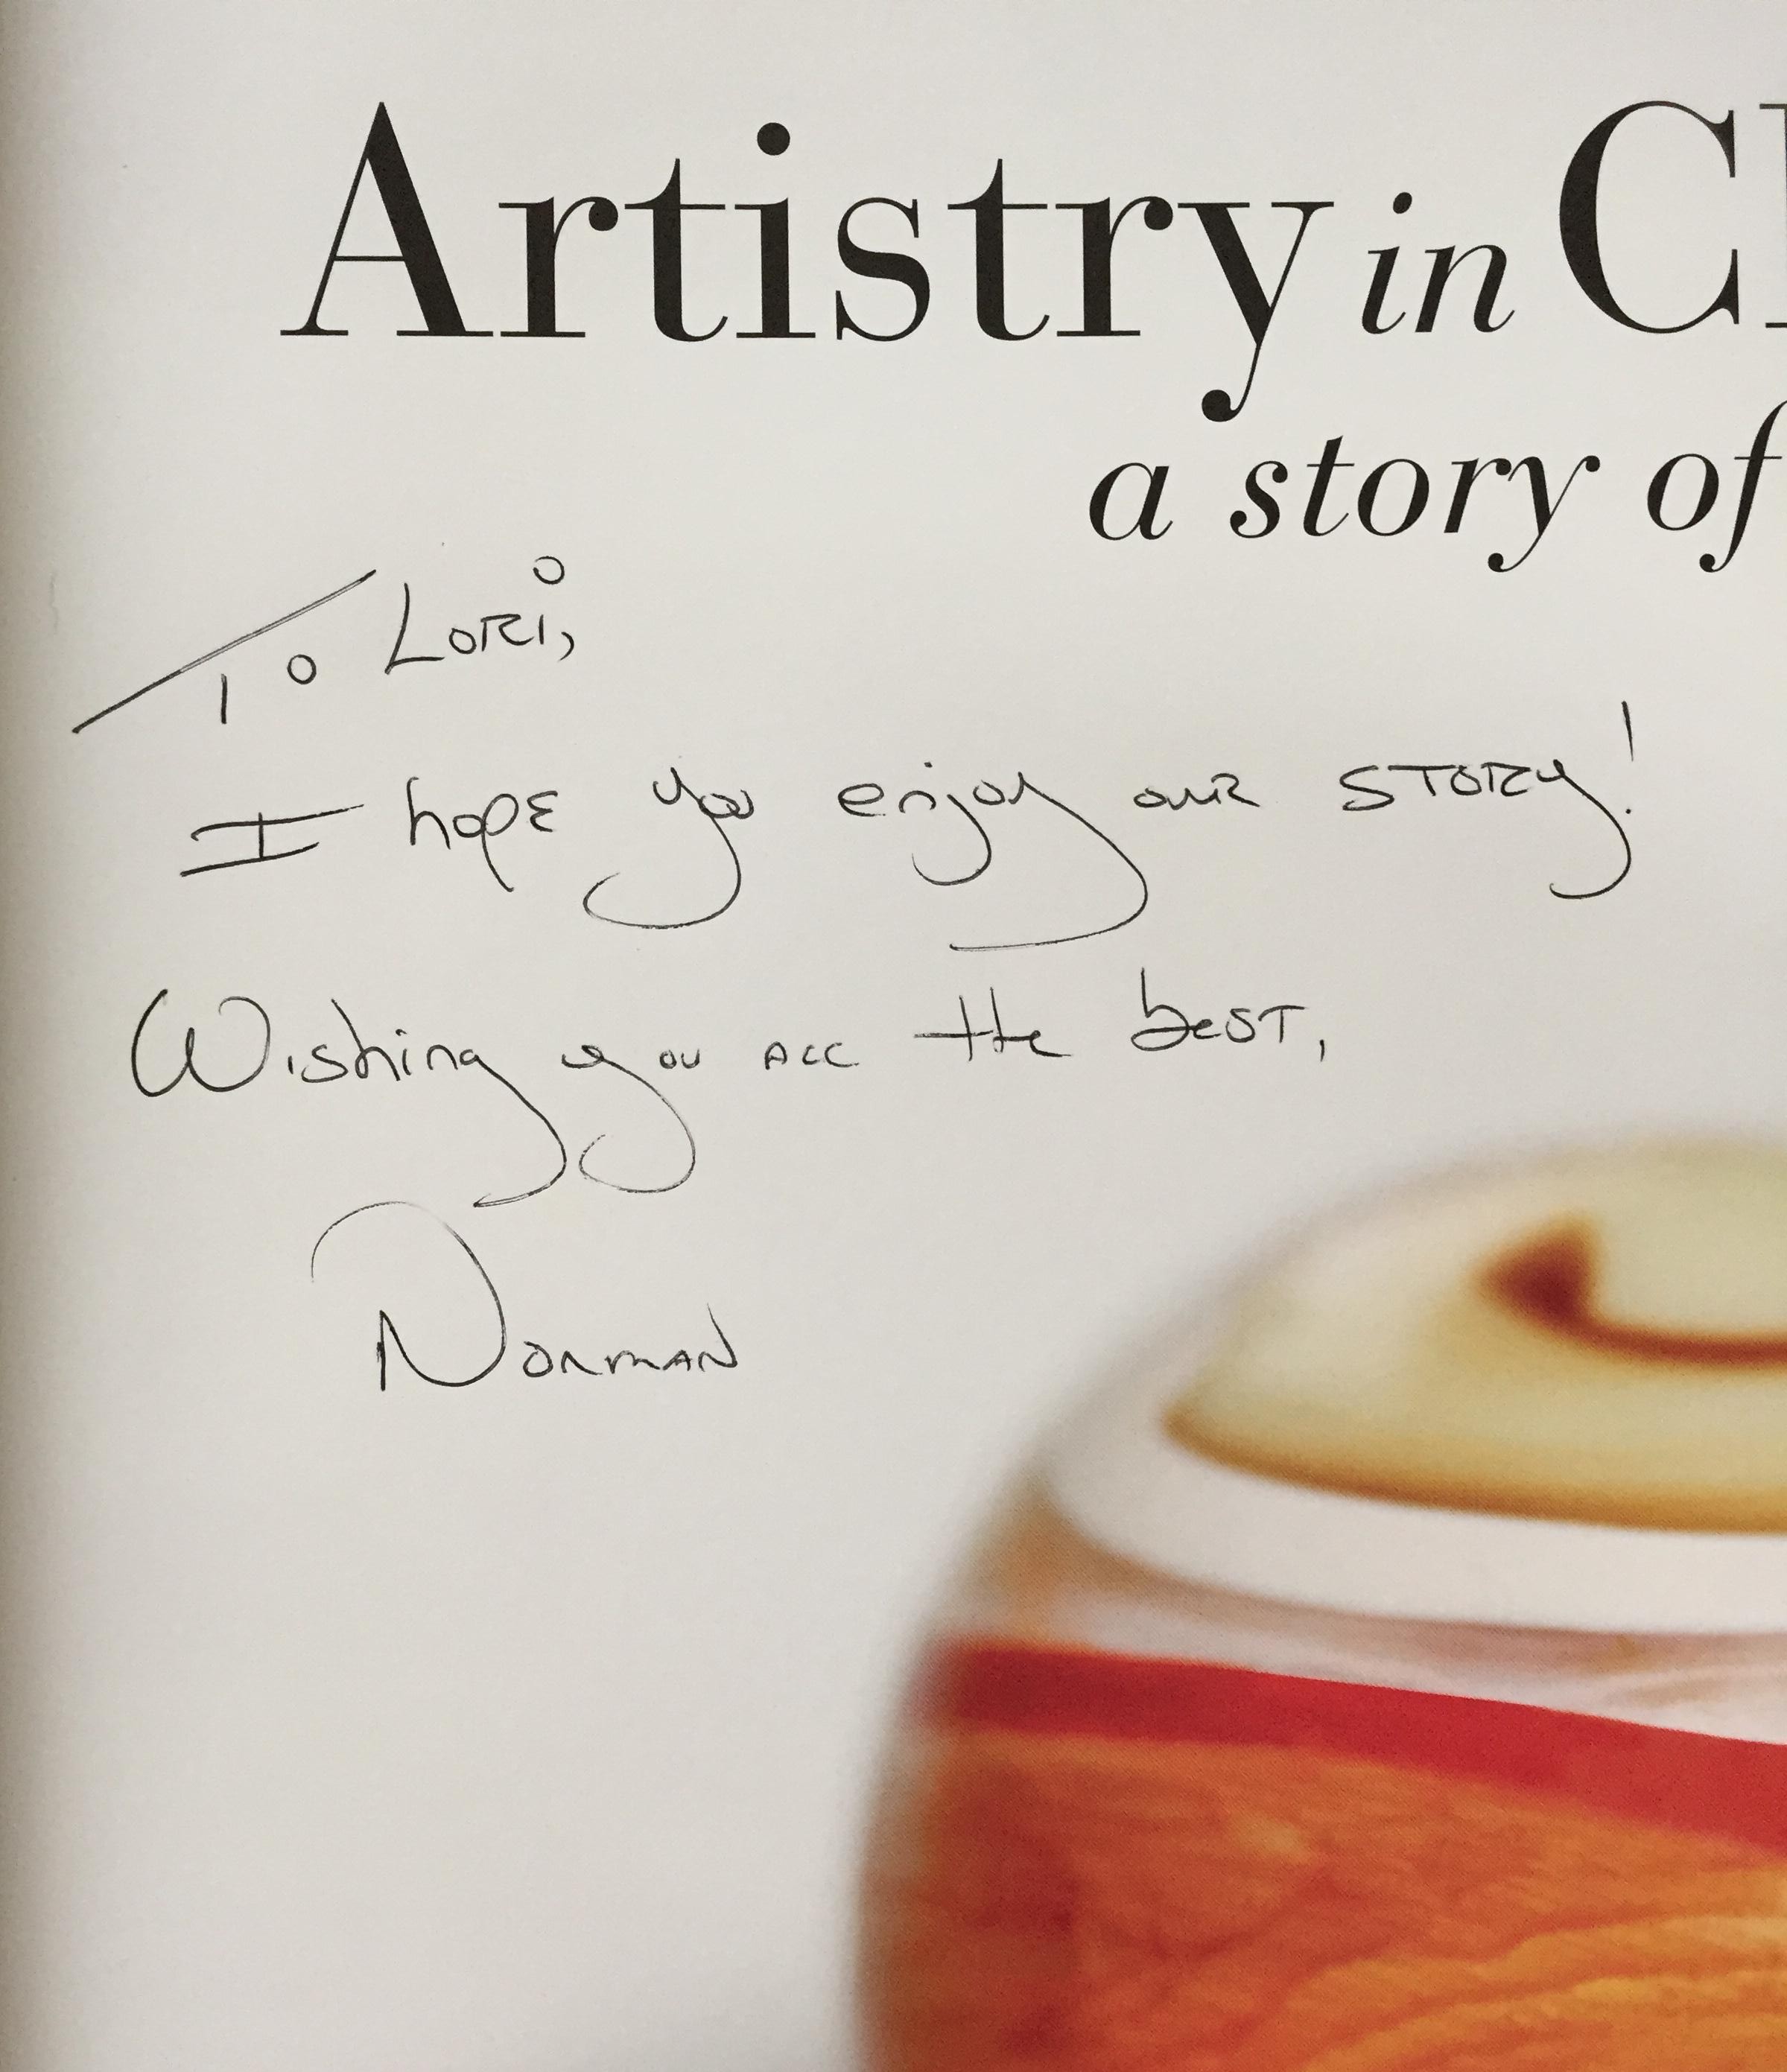 Artistry in
a story of
To Lori,
I hope you enjoy our story!
Wishing you all the best,
Norman